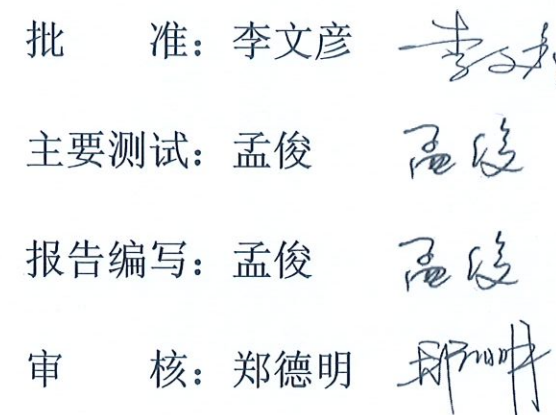 批 准：李文彦 李文彦
主要测试：孟俊 孟俊
报告编写：孟俊 孟俊
审 核：郑德明 郑德明